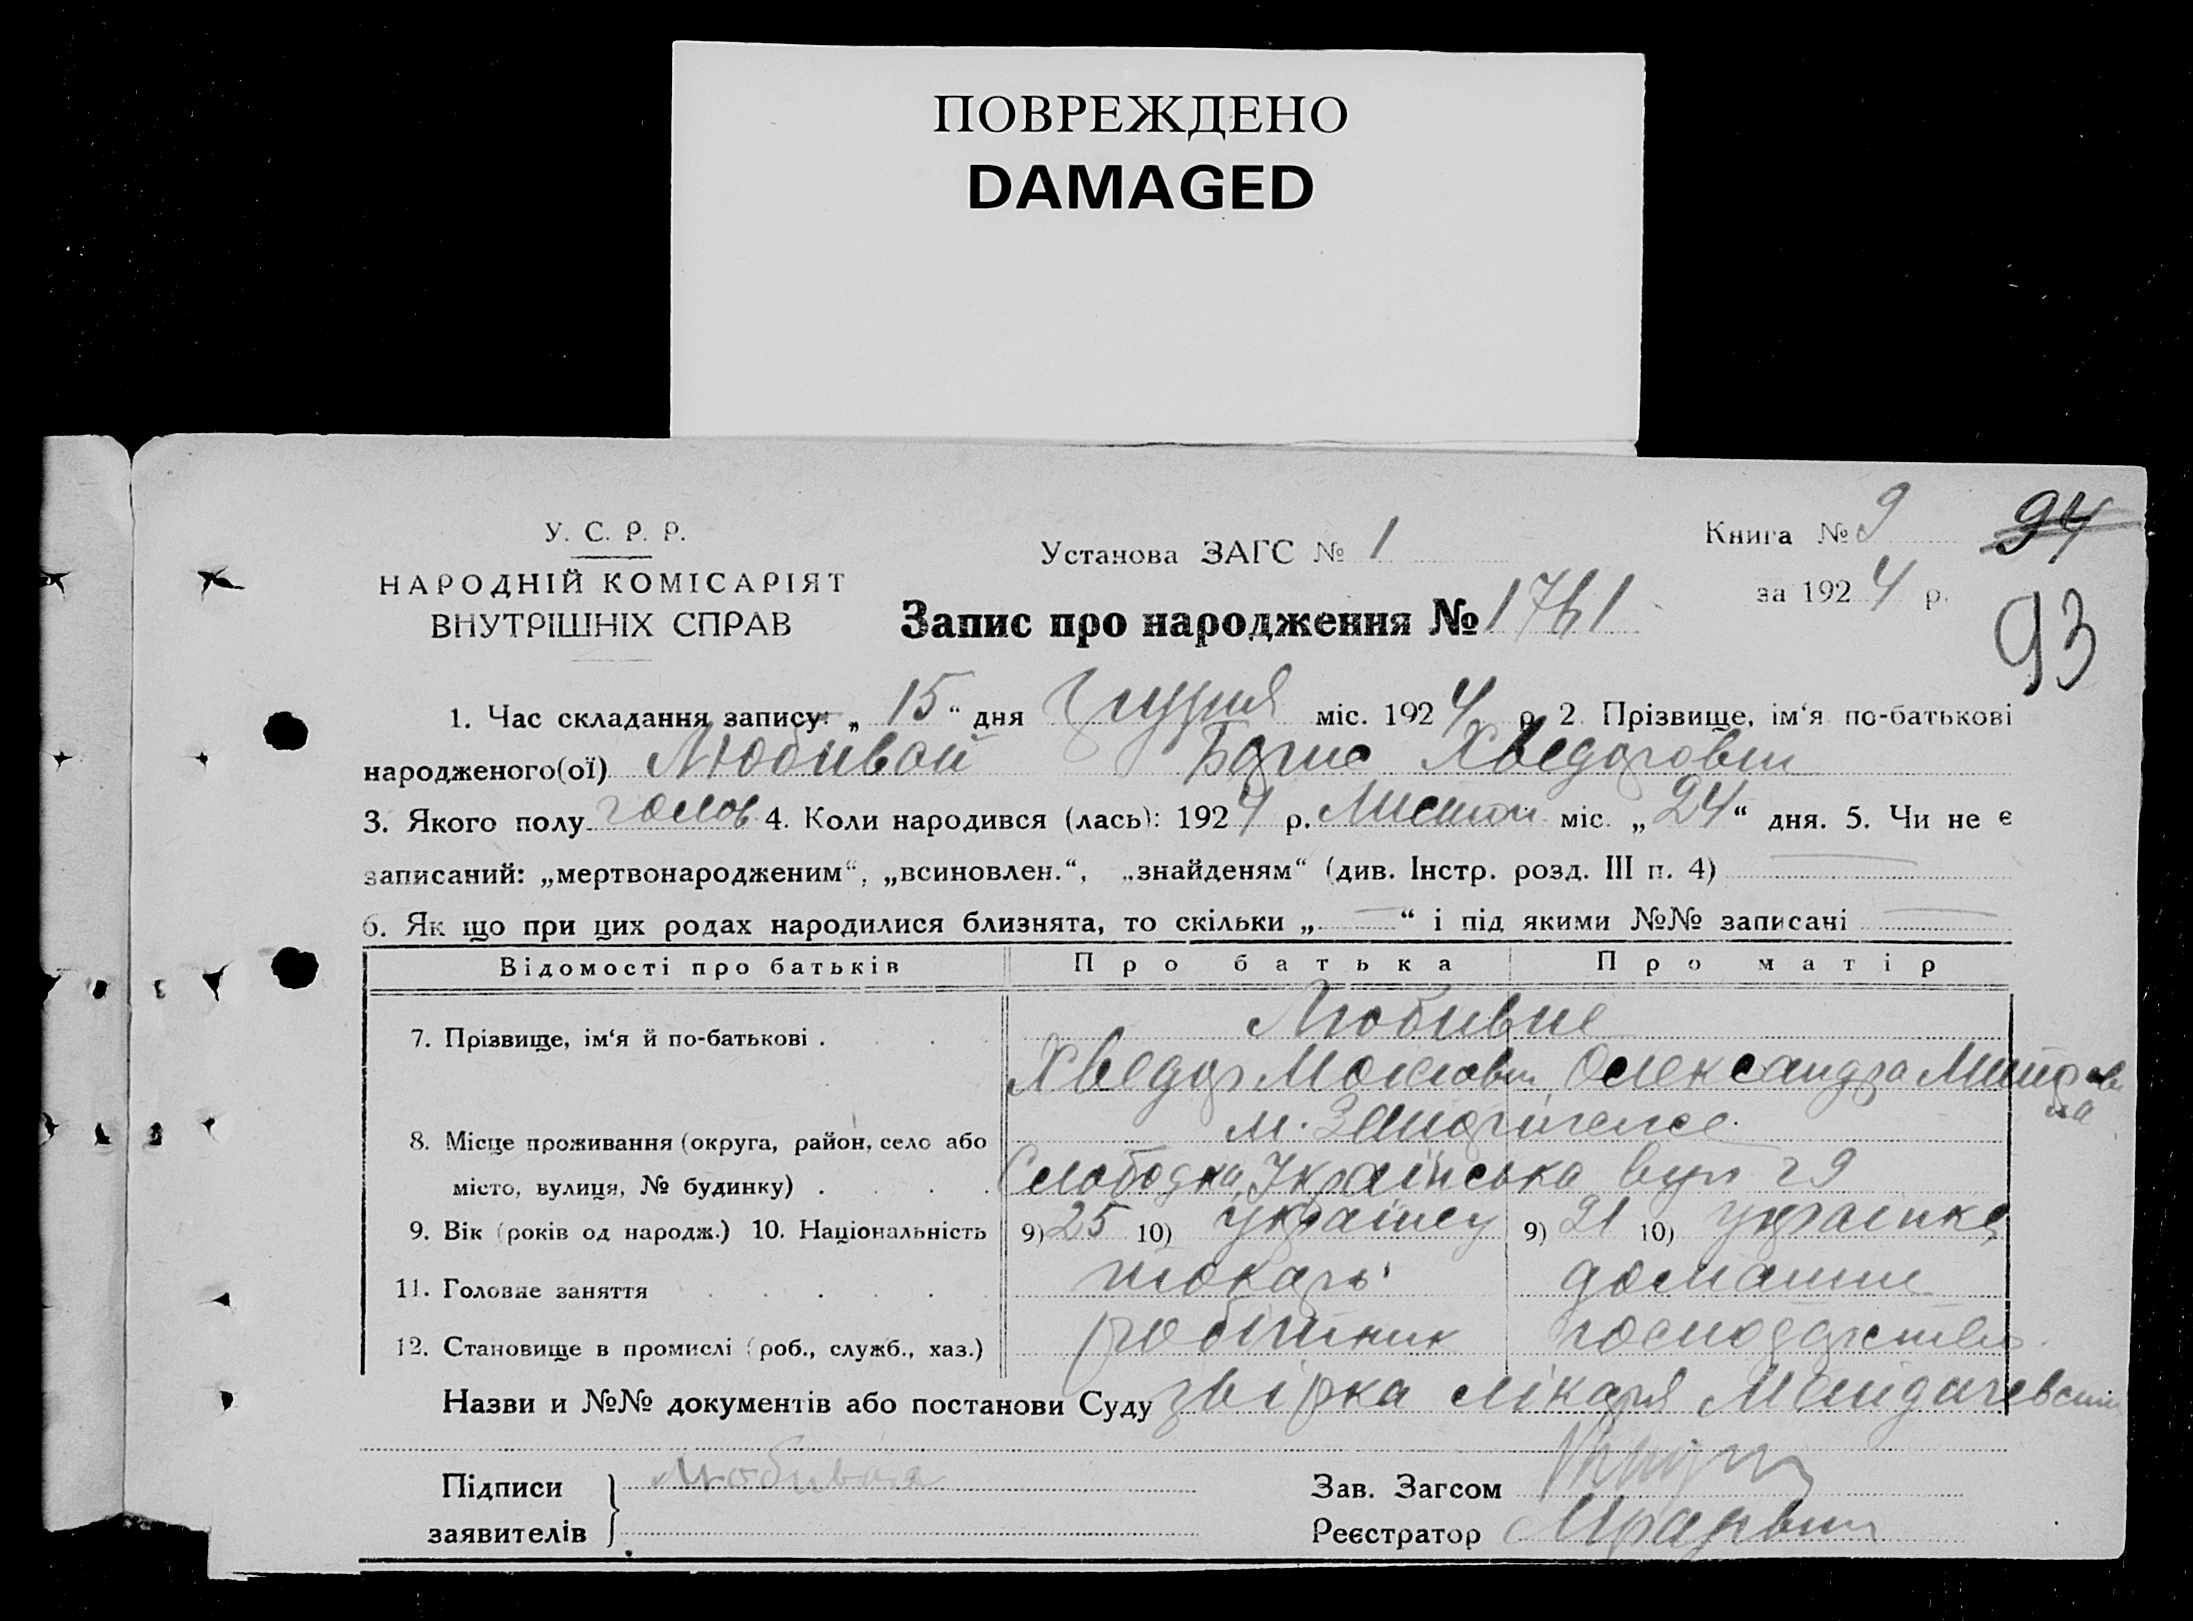 ПОВРЕЖДЕНО
DAMAGED
У. С. Р. Р.
Установа ЗАГС № 1
Книга № 9
94
НАРОДНІЙ КОМІСАРІЯТ
ВНУТРІШНІХ СПРАВ
Запис про народження № 1761
за 1924 р.
93
1. Час складання запису: „ 15 “ дня Грудня міс. 1924 р. 2 Прізвище, ім‘я по-батькові
народженого(ої) Любивой Борис Хведорович
3. Якого полу 4. Коли народився (лась): 1924 р. міс. „ 24 “ дня. 5. Чи не є
записаний: „мертвонародженим“, „всиновлен.“, „знайденям“ (див. Інстр. розд. III п. 4)
6. Як що при цих родах народилися близнята, то скільки „ — “ і під якими №№ записані —
Відомості про батьків Про батька Про матір
7. Прізвище, ім‘я й по-батькові . Любивие
Хведор Олександра
8. Місце проживання (округа, район, село або м.
місто, вулиця, № будинку) . Слободка, Українська вул 29
9. Вік (років од народж.) 10. Національність 9) 25 10) українец 9) 21 10) українка
11. Головне заняття токарь домашне
12. Становище в промислі (роб., служб., хаз.) робітник господарство
Назви и №№ документів або постанови Суду звірка лікаря
Підписи
заявителів
Любивая
Зав. Загсом
Реєстратор